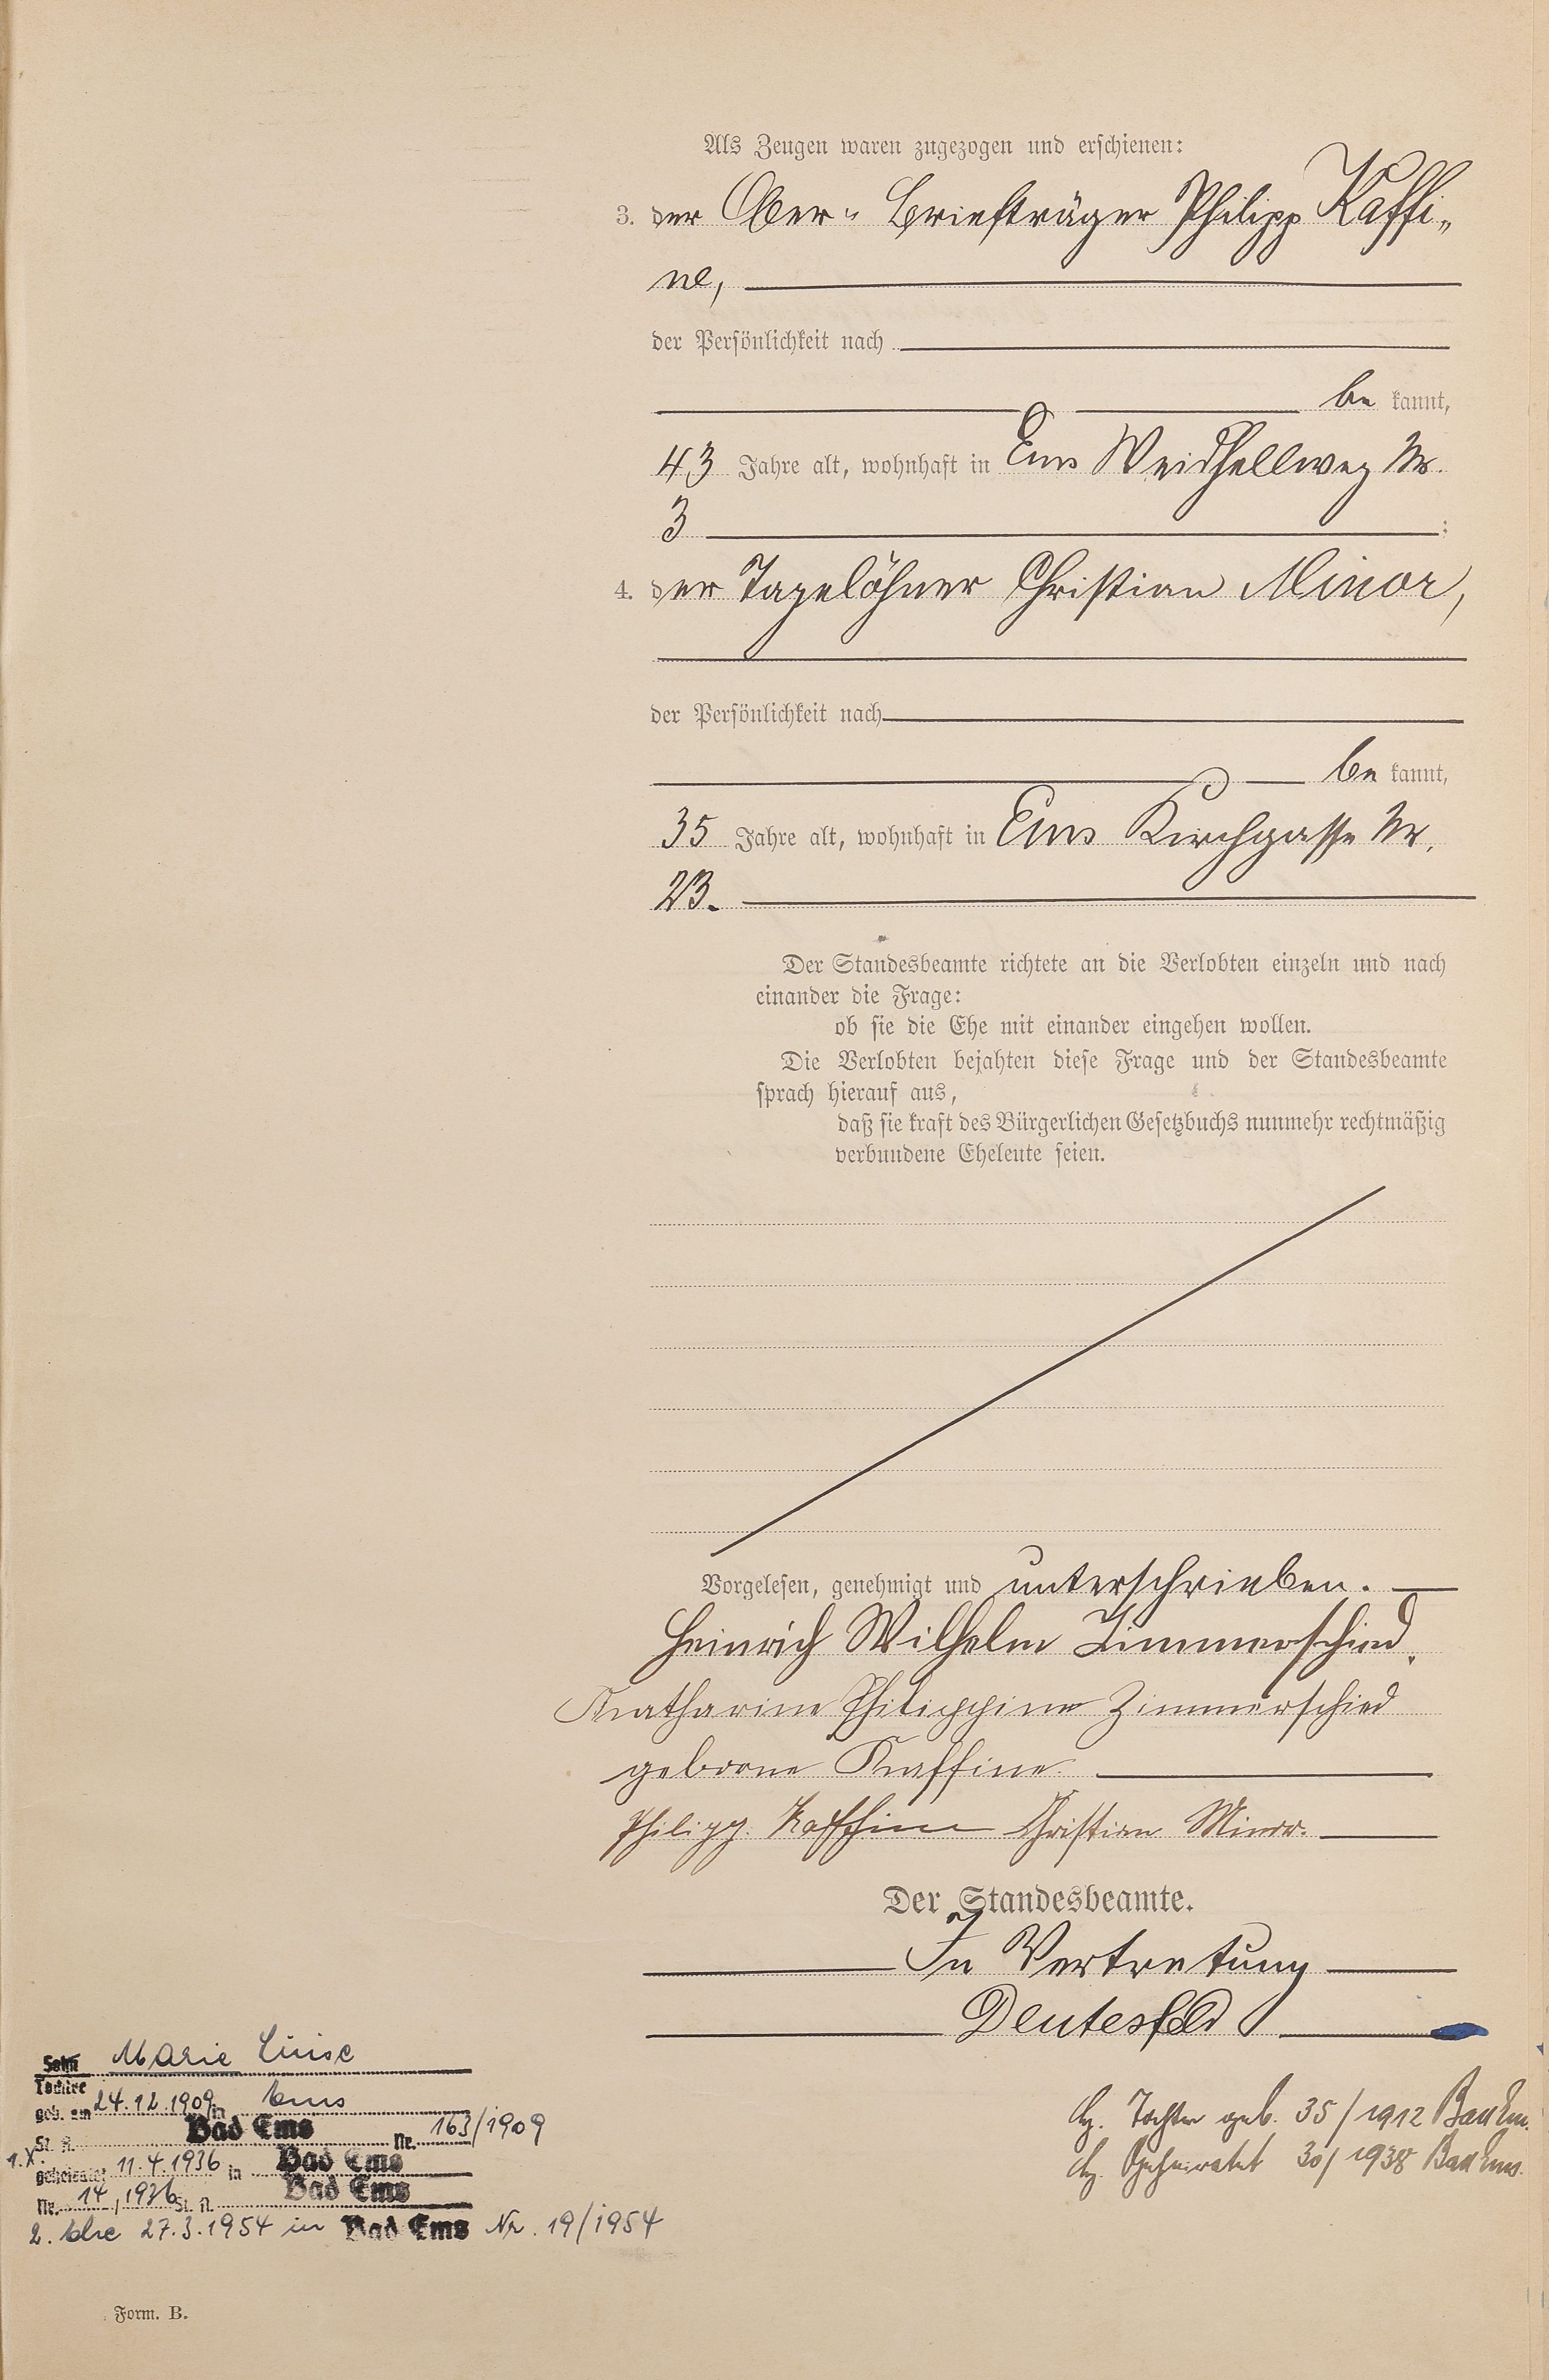 Als Zeugen waren zugezogen und erschienen:
3. der Ober- Briefträger Philipp Kaffi-
ne,
der Persönlichkeit nach
be kannt,
43 Jahre alt, wohnhaft in Ems Weidhellweg Nr.
3 ;
4. der Tagelöhner Christian Minor,
der Persönlichkeit nach
be kannt,
35 Jahre alt, wohnhaft in Ems Kirchgasse Nr.
23.
Der Standesbeamte richtete an die Verlobten einzeln und nach
einander die Frage:
ob sie die Ehe mit einander eingehen wollen.
Die Verlobten bejahten diese Frage und der Standesbeamte
sprach hierauf aus,
daß sie kraft des Bürgerlichen Gesetzbuchs nunmehr rechtmäßig
verbundene Eheleute seien.
Vorgelesen, genehmigt und unterschrieben.
Heinrich Wilhelm Zimmerschied.
Katharine Philippine Zimmerschied
geborne Kaffine.
Philipp Kaffine Christian Minor.
Der Standesbeamte.
In Vertretung
Deutesfeld
Sohn Marie Luise
Tochter
geb. am 24.12.1909 in Ems
St. A. Bad Ems Nr. 163/1909
1.X. geheiratet 11.4.1936 in Bad Ems
Nr. 14/1936 St. A. Bad Ems
2. Ehe 27.3.1954 in Bad Ems Nr. 19/1954
Tochter geb. 35/1912 Bad Ems.
30/1938 Bad Ems.
Form. B.